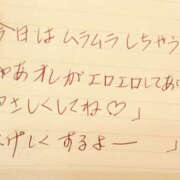 今日はムラムラしちゃう
やあオレがエロエロしてあ
やさしくしてね♡」
はげしくするよー 」